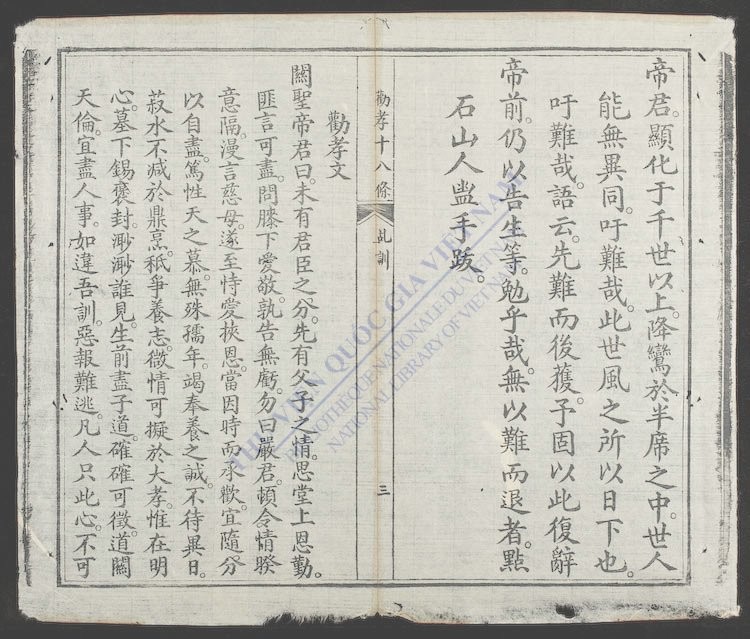 帝君。顯化于千世以上。降鸞於半席之中。世人
能無異同。吁難哉。此世風之所以日下也。
吁難哉。語云。先難而後獲。予固以此復辭
帝前。仍以告生等。勉乎哉。無以難而退者。點
石山人盥手跋。
勸孝十八條
乩訓
三
勸孝文
關聖帝君曰。未有君臣之分。先有父子之情。思堂上恩勤。
匪言可盡。問膝下愛敬。孰告無虧。勿曰嚴君。頓令情睽
意隔。漫言慈母。遂至恃愛挾恩。當因時而承歡。宜隨分
以自盡。篤性天之慕。無殊孺年。竭奉養之誠。不待異日。
菽水不减於鼎烹。秖爭養志。微情可擬於大孝。惟在明
心。墓下錫褒封。渺渺誰見。生前盡子道。確確可徵。道關
天倫。宜盡人事。如違吾訓。惡報難逃。凡人只此心。不可
THƯ VIỆN QUỐC GIA VIỆT NAM
BIBLIOTHÈQUE NATIONALE DU VIETNAM
NATIONAL LIBRARY OF VIETNAM